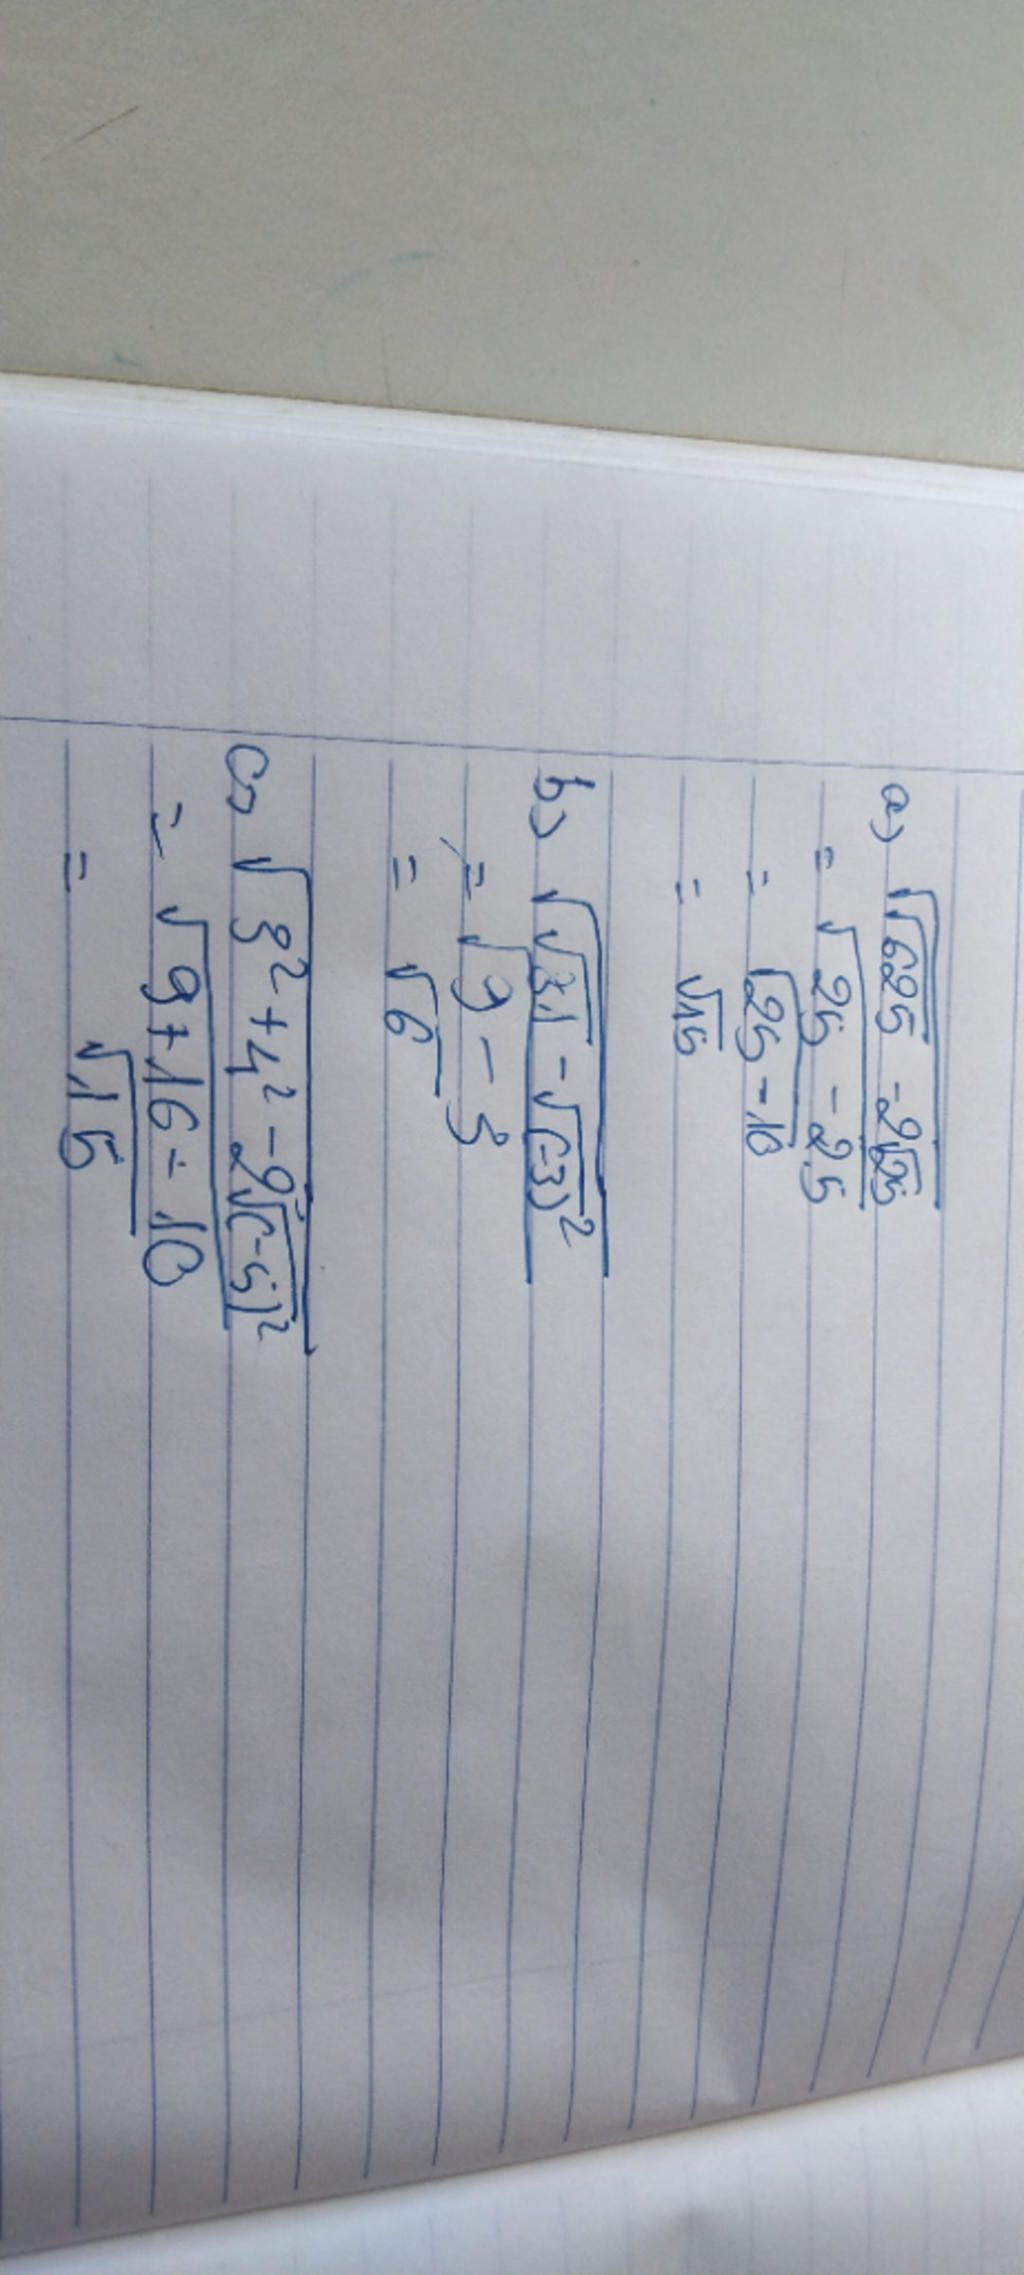 a) √(√625 - 2√25)
= √(25 - 2.5)
= √(25 - 10)
= √15
b) √(√81 - √(-3)²)
= √(9 - 3)
= √6
c) √(3² + 4² - 2√(-5)²)
= √(9 + 16 - 10)
= √15